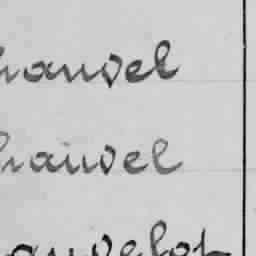 hauvel
hauvel
auvelot